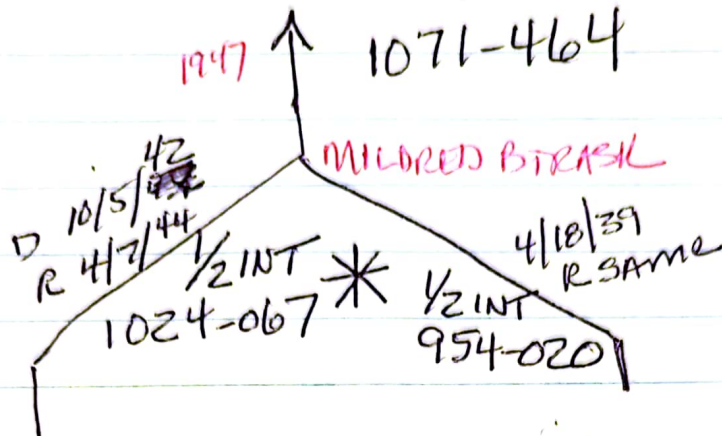 1947
1071-464
MILDRED B TRASK
D 10/5/42
R 4/7/44
1/2 INT
1024-067
4/18/39
R SAME
1/2 INT
954-020